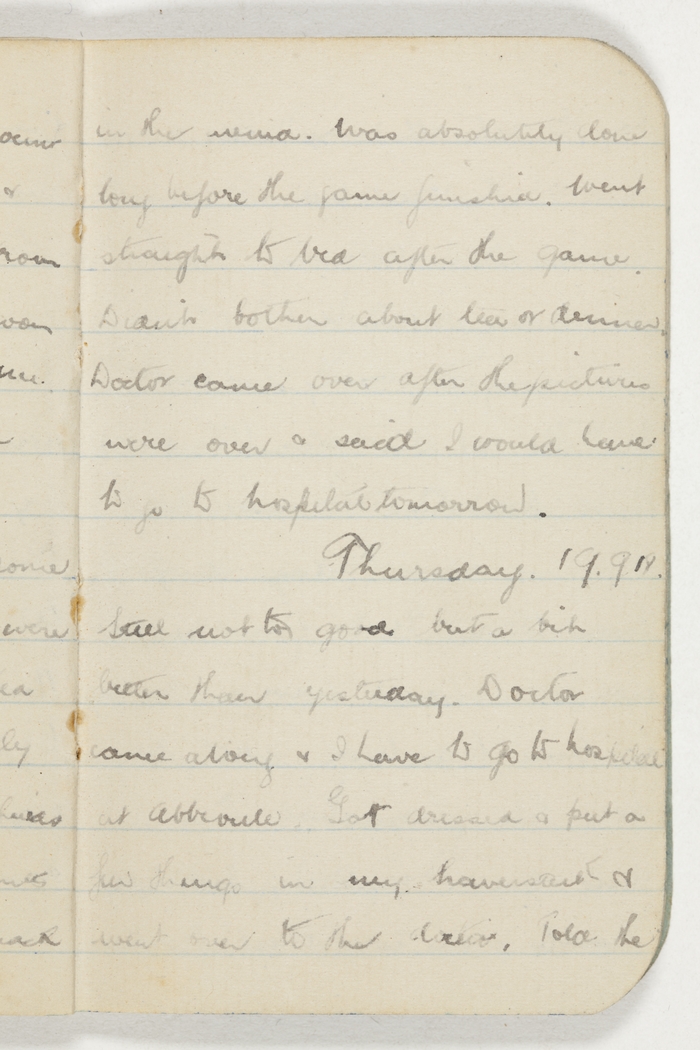 in the wind. Was absolutely done
long before the game finished. Went
straight to bed after the game.
Didn't bother about tea or dinner.
Doctor came over after the pictures
were over & said I would have
to go to hospital tomorrow.
Thursday. 19.9.18.
Still not too good but a bit
better than yesterday. Doctor
came along & I have to go to hospital
at Abbeville. Got dressed & put a
few things in my haversack &
went over to the doctor. Told the